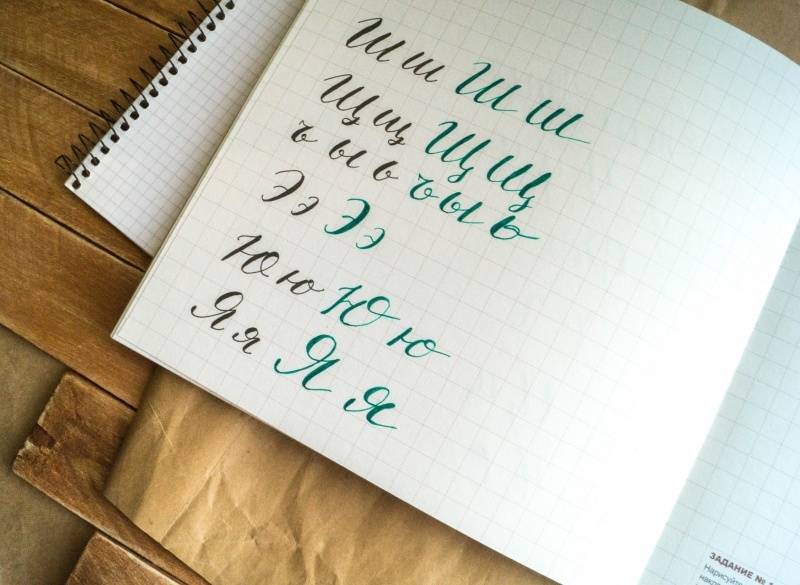 Шш Шш
Щщ Щщ
ъ ы ь ъ ы ь
Ээ Ээ
Юю Юю
Яя Яя
ЗАДАНИЕ №
Нарисуйте